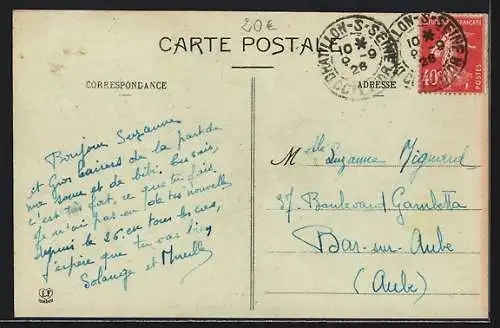 20€
CARTE POSTALE
CHATILLON-S-SEINE
10 * 9
26
CÔTE D'OR
CHATILLON-S-SEINE
10 * 9
26
40
POSTES
CORRESPONDANCE
ADRESSE
Bonjour Suzanne
et Gros baisers de la part de
ma et de bibi.
c'est très fort, ce que tu fais
Je n'ai pas eu de tes nouvelles
depuis le 26. en tous les cas,
j'espère que tu vas bien
Solange et Mireille
Melle Suzanne Mignard
37. Boulevard Gambetta
Bar-sur-Aube
(Aube)